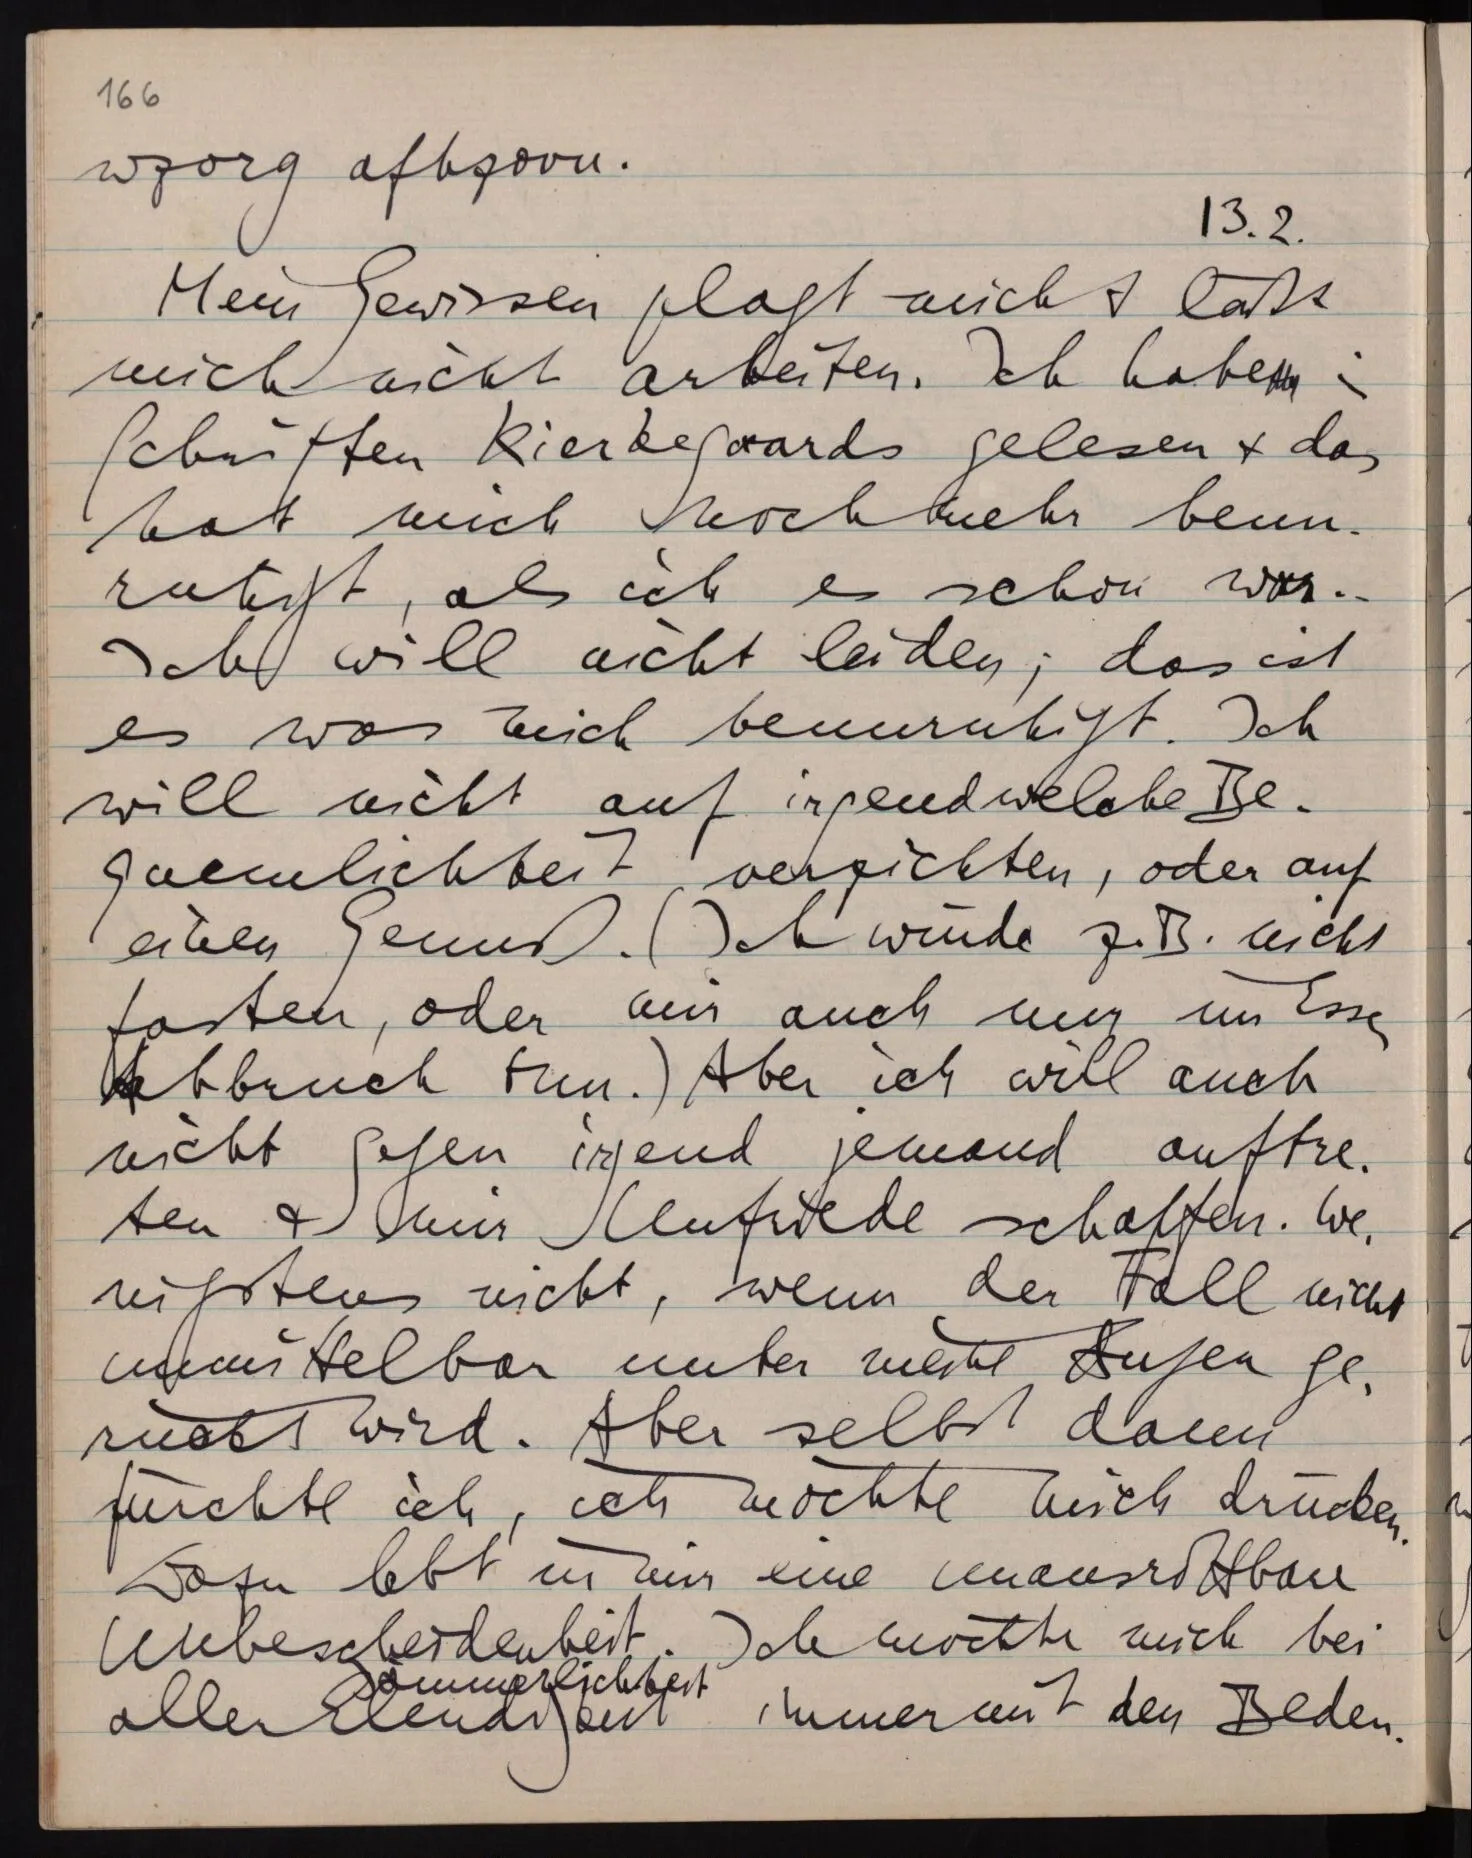 166
wzorg afhzovu.
13.2.
Mein Gewissen plagt mich & läßt
mich nicht arbeiten. Ich habe in
Schriften Kierkegaards gelesen & das
hat mich noch mehr beun-
ruhigt, als ich es schon war.
Ich will nicht leiden; das ist
es was mich beunruhigt. Ich
will nicht auf irgendwelche Be-
quemlichkeit verzichten, oder auf
einen Genuß. (Ich würde z.B. nicht
fasten, oder mir auch nur im Essen
Abbruch tun.) Aber ich will auch
nicht gegen irgend jemand auftre-
ten & mir Unfriede schaffen. We-
nigstens nicht, wenn der Fall nicht
unmittelbar unter meine Augen ge-
rückt wird. Aber selbst dann
fürchte ich, ich möchte mich drücken.
Dazu lebt in mir eine unausrottbare
Unbescheidenheit. Ich möchte mich bei
Jämmerlichkeit
aller Elendigkeit immer mit den Beden-